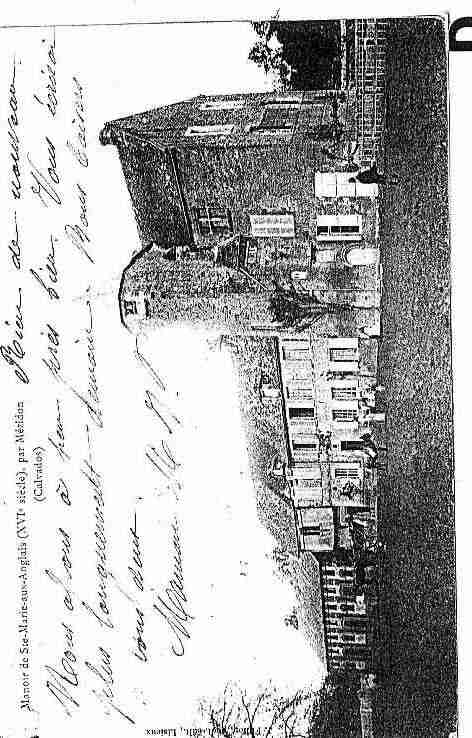 Manoir de Ste-Marie-aux-Anglais (XVIe siècle), par Mézidon
(Calvados)
Rien de nouveau
Nous allons à peu près bien. Vous écrirai
plus longuement demain. Bons baisers
vous deux.
Maman
édit., Lisieux